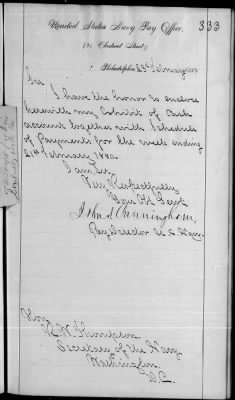 333
United States Navy Pay Office,
Chestnut Street
Philadelphia 23rd February 1880
Sir
I have the honor to enclose
herewith my Exhibit of Cash
account together with Schedule
of Payments for the week ending
21st February 1880.
I am, Sir
Very Respectfully
Your Obt Servt
John S Cunningham,
Pay Director U.S. Navy.
Hon
R W Thompson
Secretary of the Navy
Washington
D.C.